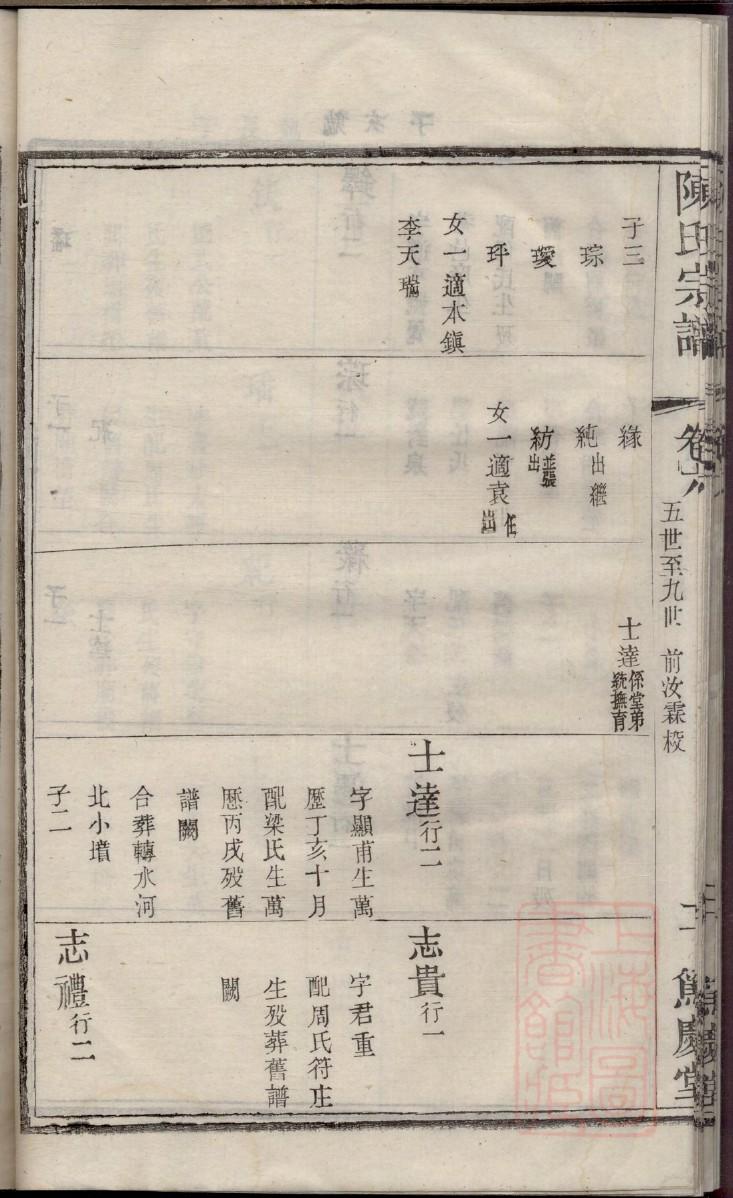 陳氏宗譜
卷六
五世至九世 前汝霖校
二 篤慶堂
子三
琮
璦
玶
女一適本鎮
李天瑞
緣
純出繼
紡並張出
女一適袁任出
士達係堂弟統撫育
士達行二
字顯甫生萬
歷丁亥十月
配梁氏生萬
厯丙戌殁舊
譜闕
合葬轉水河
北小墳
子二
志貴行一
字君重
配周氏符庄
生殁葬舊譜
闕
志禮行二
上海圖書館藏